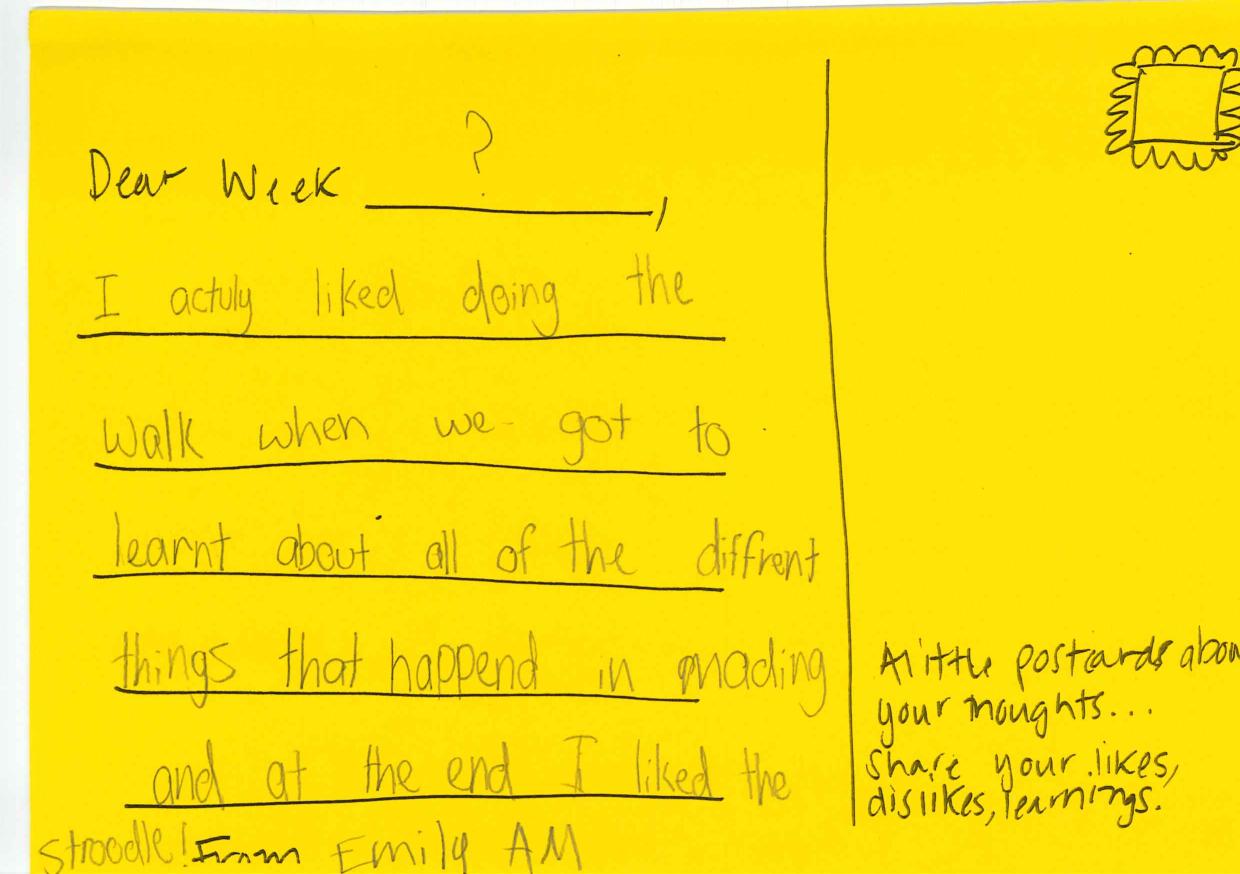 Dear Week ?,
I actuly liked doing the
walk when we got to
learnt about all of the diffrent
things that happend in mading
and at the end I liked the
stroodle! From Emily AM
A little postcards abou
your thoughts...
Share your likes,
dislikes, learnings.